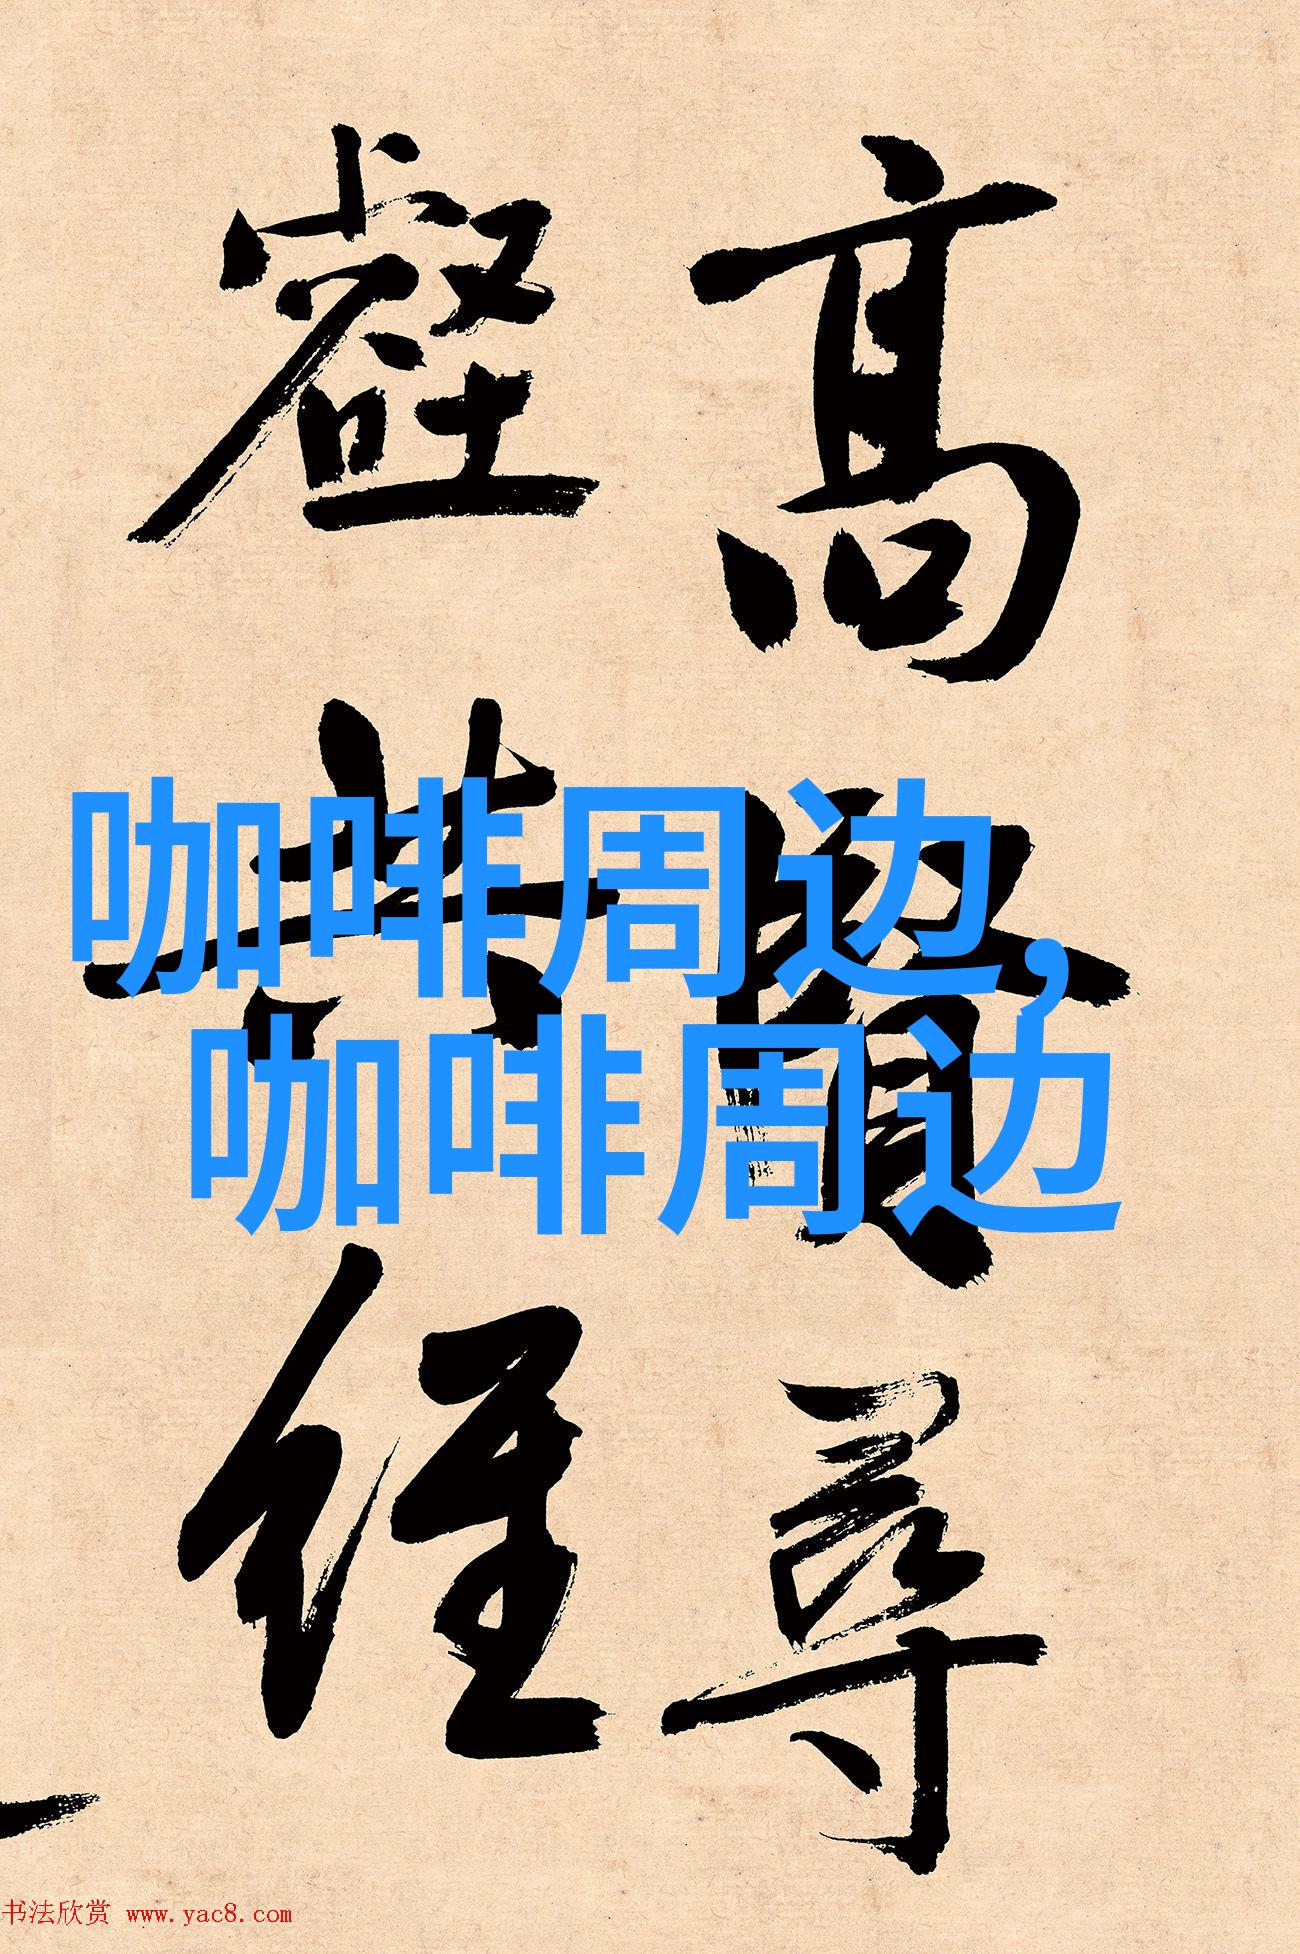 高賢尋
壑共經
咖啡周边,
咖啡周边
书法欣赏 www.yac8.com